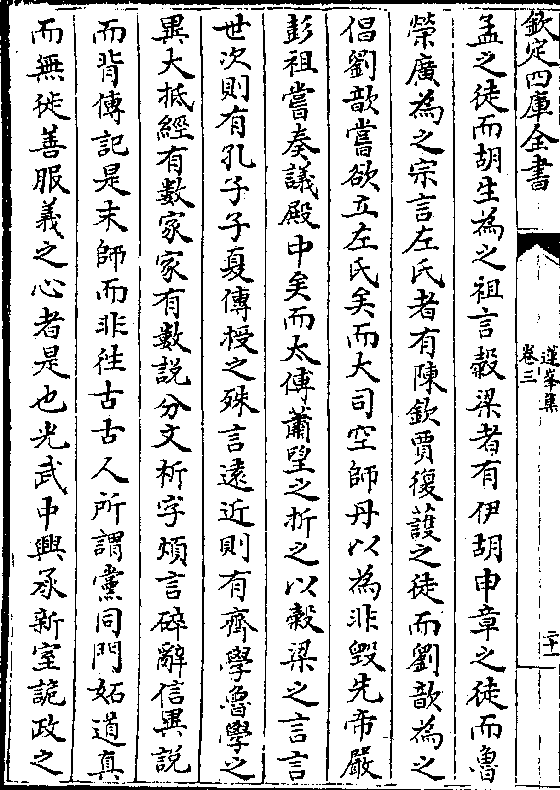 欽定四庫全書
蓮峯集
卷三
二十
孟之徒而胡生為之祖言穀梁者有伊胡申章之徒而魯
榮廣為之宗言左氏者有陳欽賈復護之徒而劉歆為之
倡劉歆嘗欲立左氏矣而大司空師丹以為非毀先帝嚴
彭祖嘗奏議殿中矣而太傅蕭望之折之以穀梁之言言
世次則有孔子子夏傳授之殊言遠近則有齊學魯學之
異大抵經有數家家有數說分文析字煩言碎辭信異說
而背傳記是末師而非徃古古人所謂黨同門妬道真
而無徙善服義之心者是也光武中興承新室詭政之